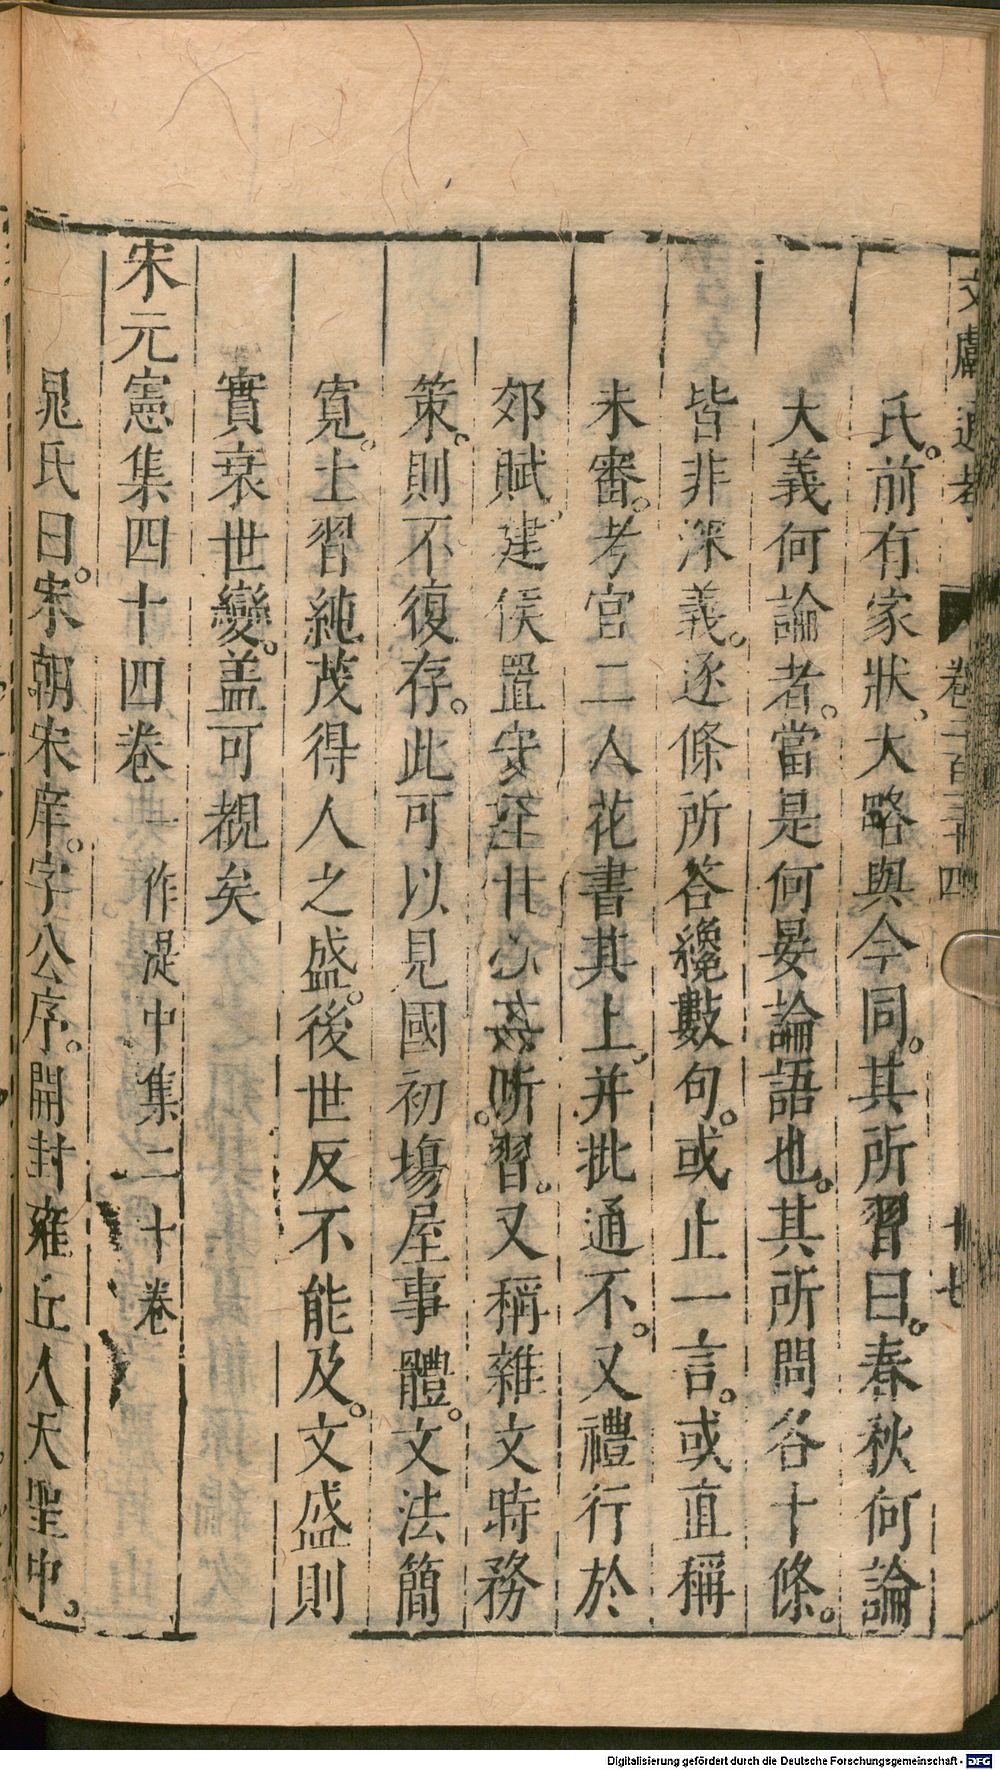 文獻通考 卷二百三十四 十七
氏。前有家狀、大略與今同。其所習曰。春秋何論
大義何論者。當是何晏論語也。其所問各十條。
皆非深義。逐條所答纔數句。或止一言。或直稱
未審。考官二人花書其上、并批通不。又禮行於
郊賦、建侯置守 所習。又稱雜文時務
策。則不復存。此可以見國初塲屋事體。文法簡
寬。士習純茂得人之盛。後世反不能及。文盛則
實衰世變。盖可覩矣
宋元憲集四十四卷 一作湜中集二十卷
晁氏曰。宋朝宋庠。字公序。開封雍丘人天聖中。
Digitalisierung gefördert durch die Deutsche Forschungsgemeinschaft - DFG